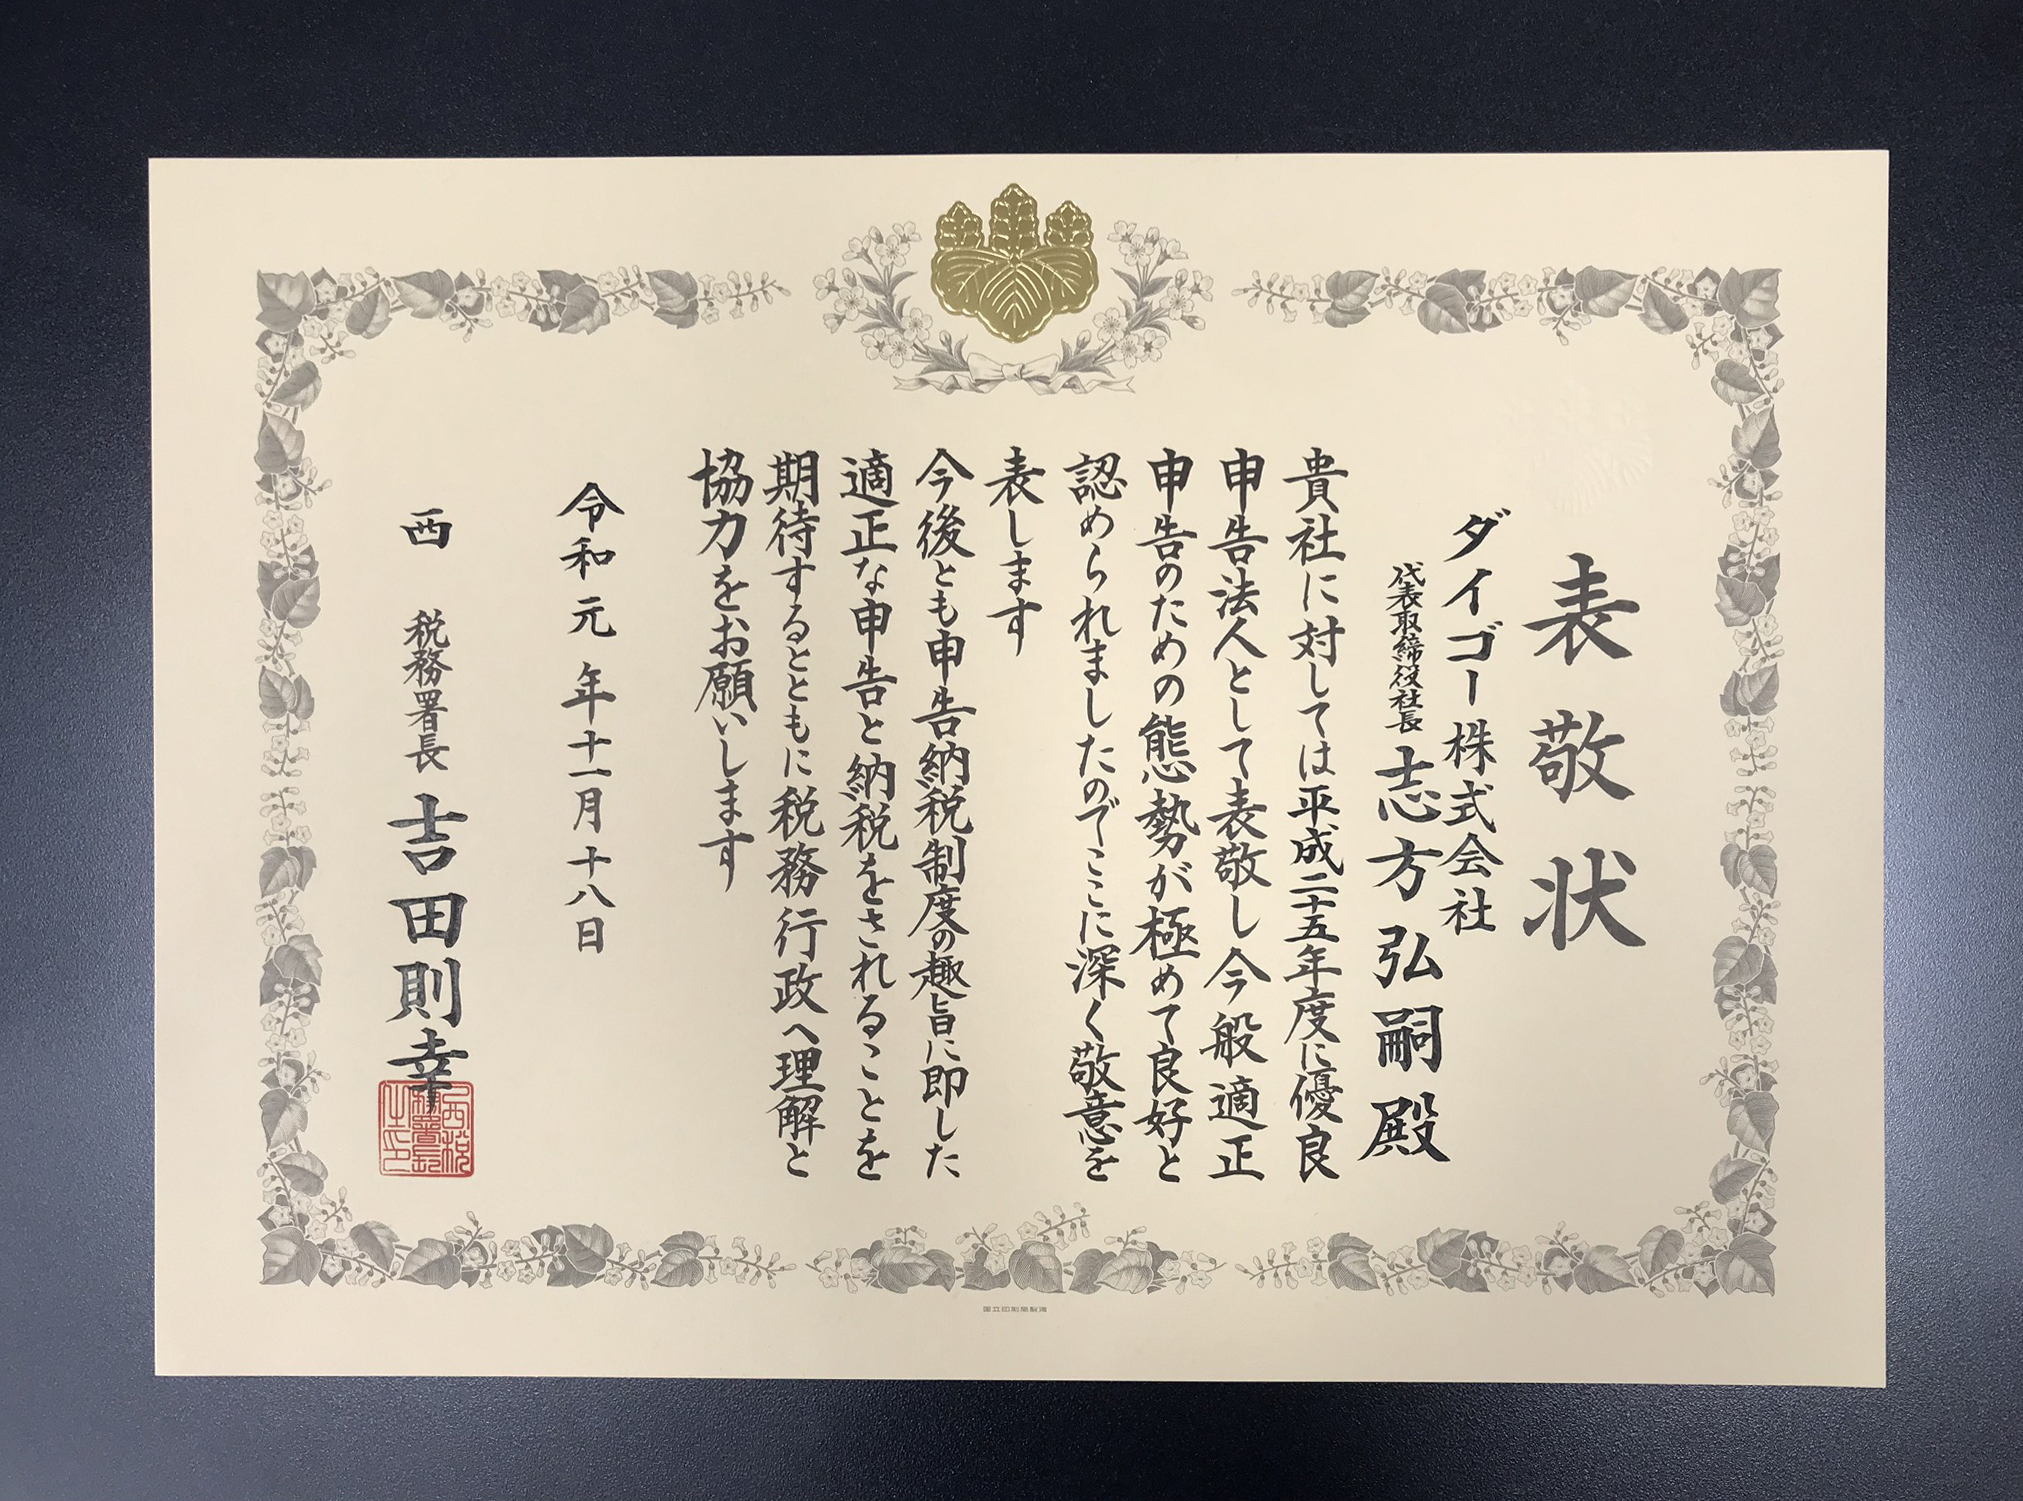 表敬状
ダイゴー株式会社
代表取締役社長 志方弘嗣殿
貴社に対しては平成二十五年度に優良
申告法人として表敬し今般適正
申告のための態勢が極めて良好と
認められましたのでここに深く敬意を
表します
今後とも申告納税制度の趣旨に即した
適正な申告と納税をされることを
期待するとともに税務行政へ理解と
協力をお願いします
令和元年十一月十八日
西 税務署長 吉田則幸
西税務署長之印
国立印刷局製造